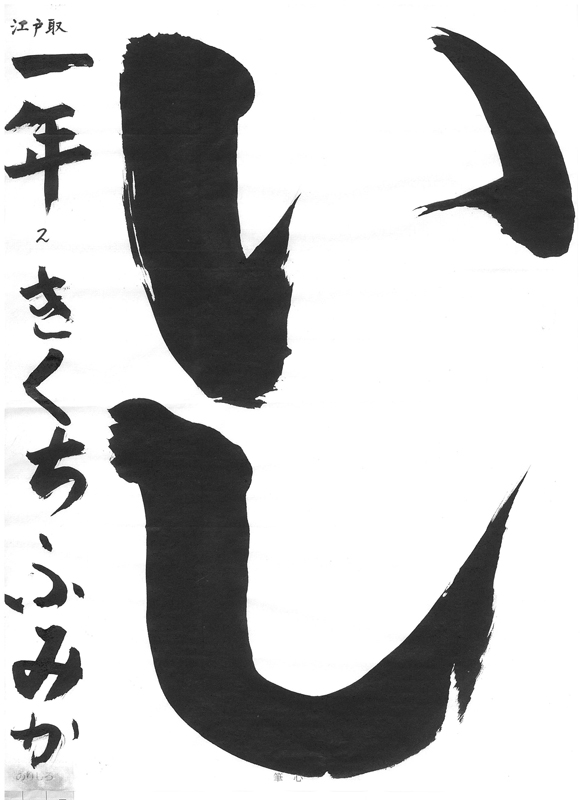 いし
江戸取
一年
ス
きくちふみか
筆心